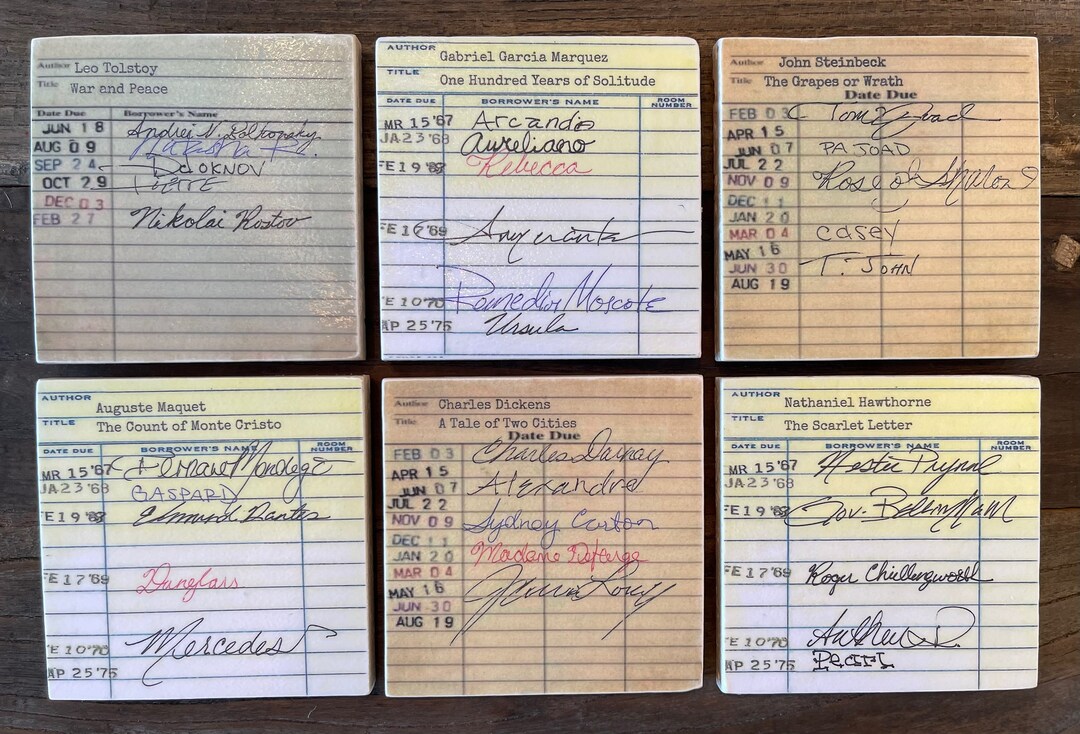 Author Leo Tolstoy
Title War and Peace
Date Due Borrower's Name
JUN 18 Andrei N. Bolkonsky
AUG 09 Natasha
SEP 24 DOLOKNOV
OCT 29
DEC 03
FEB 27 Nikolai Rostov
AUTHOR Gabriel Garcia Marquez
TITLE One Hundred Years of Solitude
DATE DUE BORROWER'S NAME ROOM NUMBER
MR 15'67 Arcandio
JA 23'68 Aureliano
FE 19'68 Rebecca
FE 17'69
FE 10'70 Remedios Moscote
AP 25'75 Ursula
Author John Steinbeck
Title The Grapes or Wrath
Date Due
FEB 03 Tom Joad
APR 15
JUN 07 PA JOAD
JUL 22
NOV 09 Rose of Sharon
DEC 11
JAN 20
MAR 04 casey
MAY 16
JUN 30 T. JOHN
AUG 19
AUTHOR Auguste Maquet
TITLE The Count of Monte Cristo
DATE DUE BORROWER'S NAME ROOM NUMBER
MR 15'67 Fernand Mondego
JA 23'68 GASPARD
FE 19'68 Edmund Dantes
FE 17'69 Danglars
FE 10'70 Mercedes
AP 25'75
Author Charles Dickens
Title A Tale of Two Cities
Date Due
FEB 03 Charles Darnay
APR 15 Alexandre
JUN 07
JUL 22
NOV 09 Sydney Carton
DEC 11
JAN 20 Madame Defarge
MAR 04
MAY 16
JUN 30
AUG 19
AUTHOR Nathaniel Hawthorne
TITLE The Scarlet Letter
DATE DUE BORROWER'S NAME ROOM NUMBER
MR 15'67 Hester Prynne
JA 23'68
FE 19'68 Gov. Bellingham
FE 17'69 Roger Chillingworth
FE 10'70
AP 25'75 Pearl